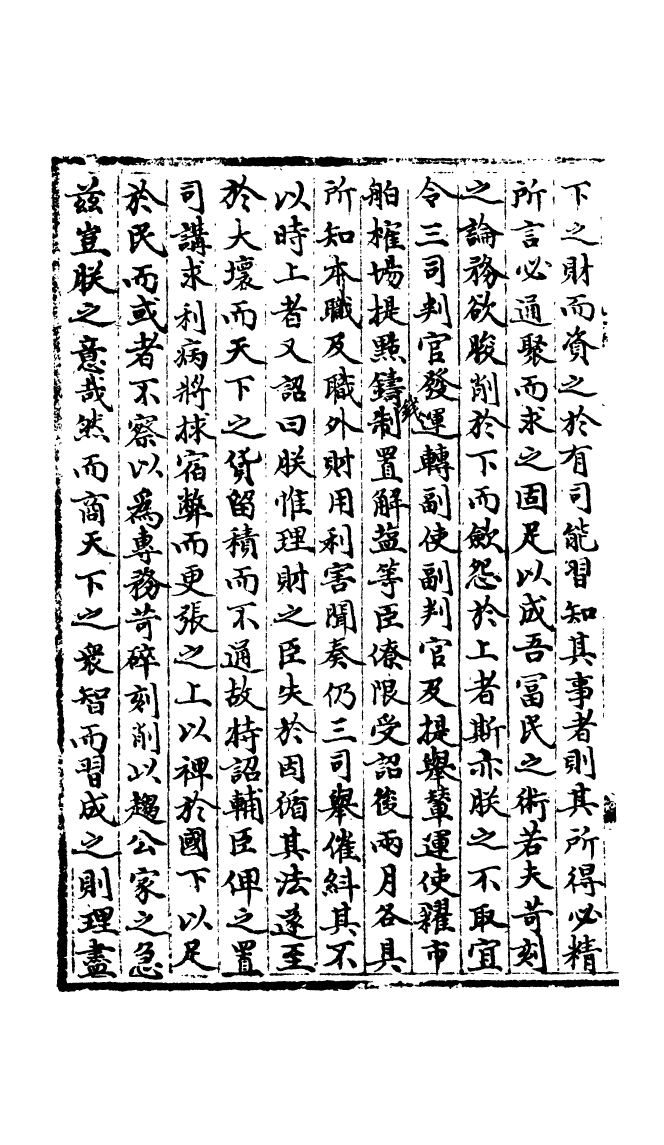 下之財而資之於有司能習知其事者則其所得必精
所言必通聚而求之固足以成吾冨民之術若夫苛刻
之論務欲朘削於下而歛怨於上者斯亦朕之不取宜
令三司判官發運轉副使副判官及提舉輦運使糴市
舶榷場提㸃鑄錢制置解盐等臣僚限受詔後兩月各具
所知本職及職外財用利害聞奏仍三司舉催糾其不
以時上者又詔曰朕惟理財之臣失於因循其法遂至
於大壞而天下之货留積而不通故特詔輔臣俾之置
司講求利病將捄宿弊而更張之上以裨於國下以足
於民而或者不察以爲專務苛碎刻削以趨公家之急
兹豈朕之意哉然而商天下之衆智而習成之則理盡